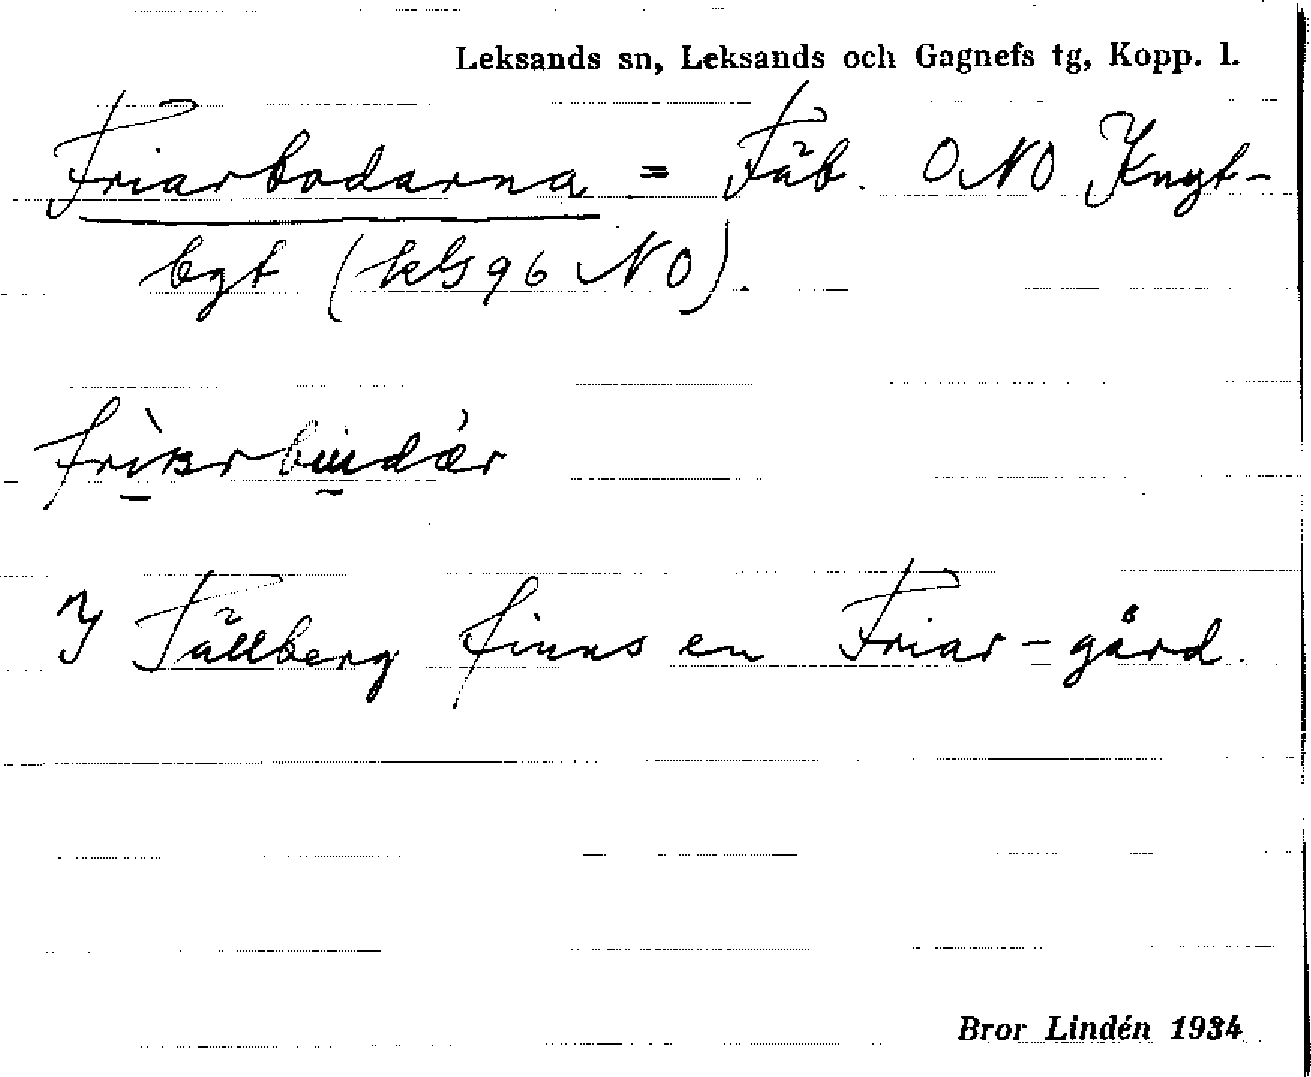 Leksands sn, Leksands och Gagnefs tg, Kopp. l.
Friarbodarna = Fäb. ONO Knyt-
bgt (kbl 96 NO).
I Tällberg finns en Friar-gård.
Bror Lindén 1934